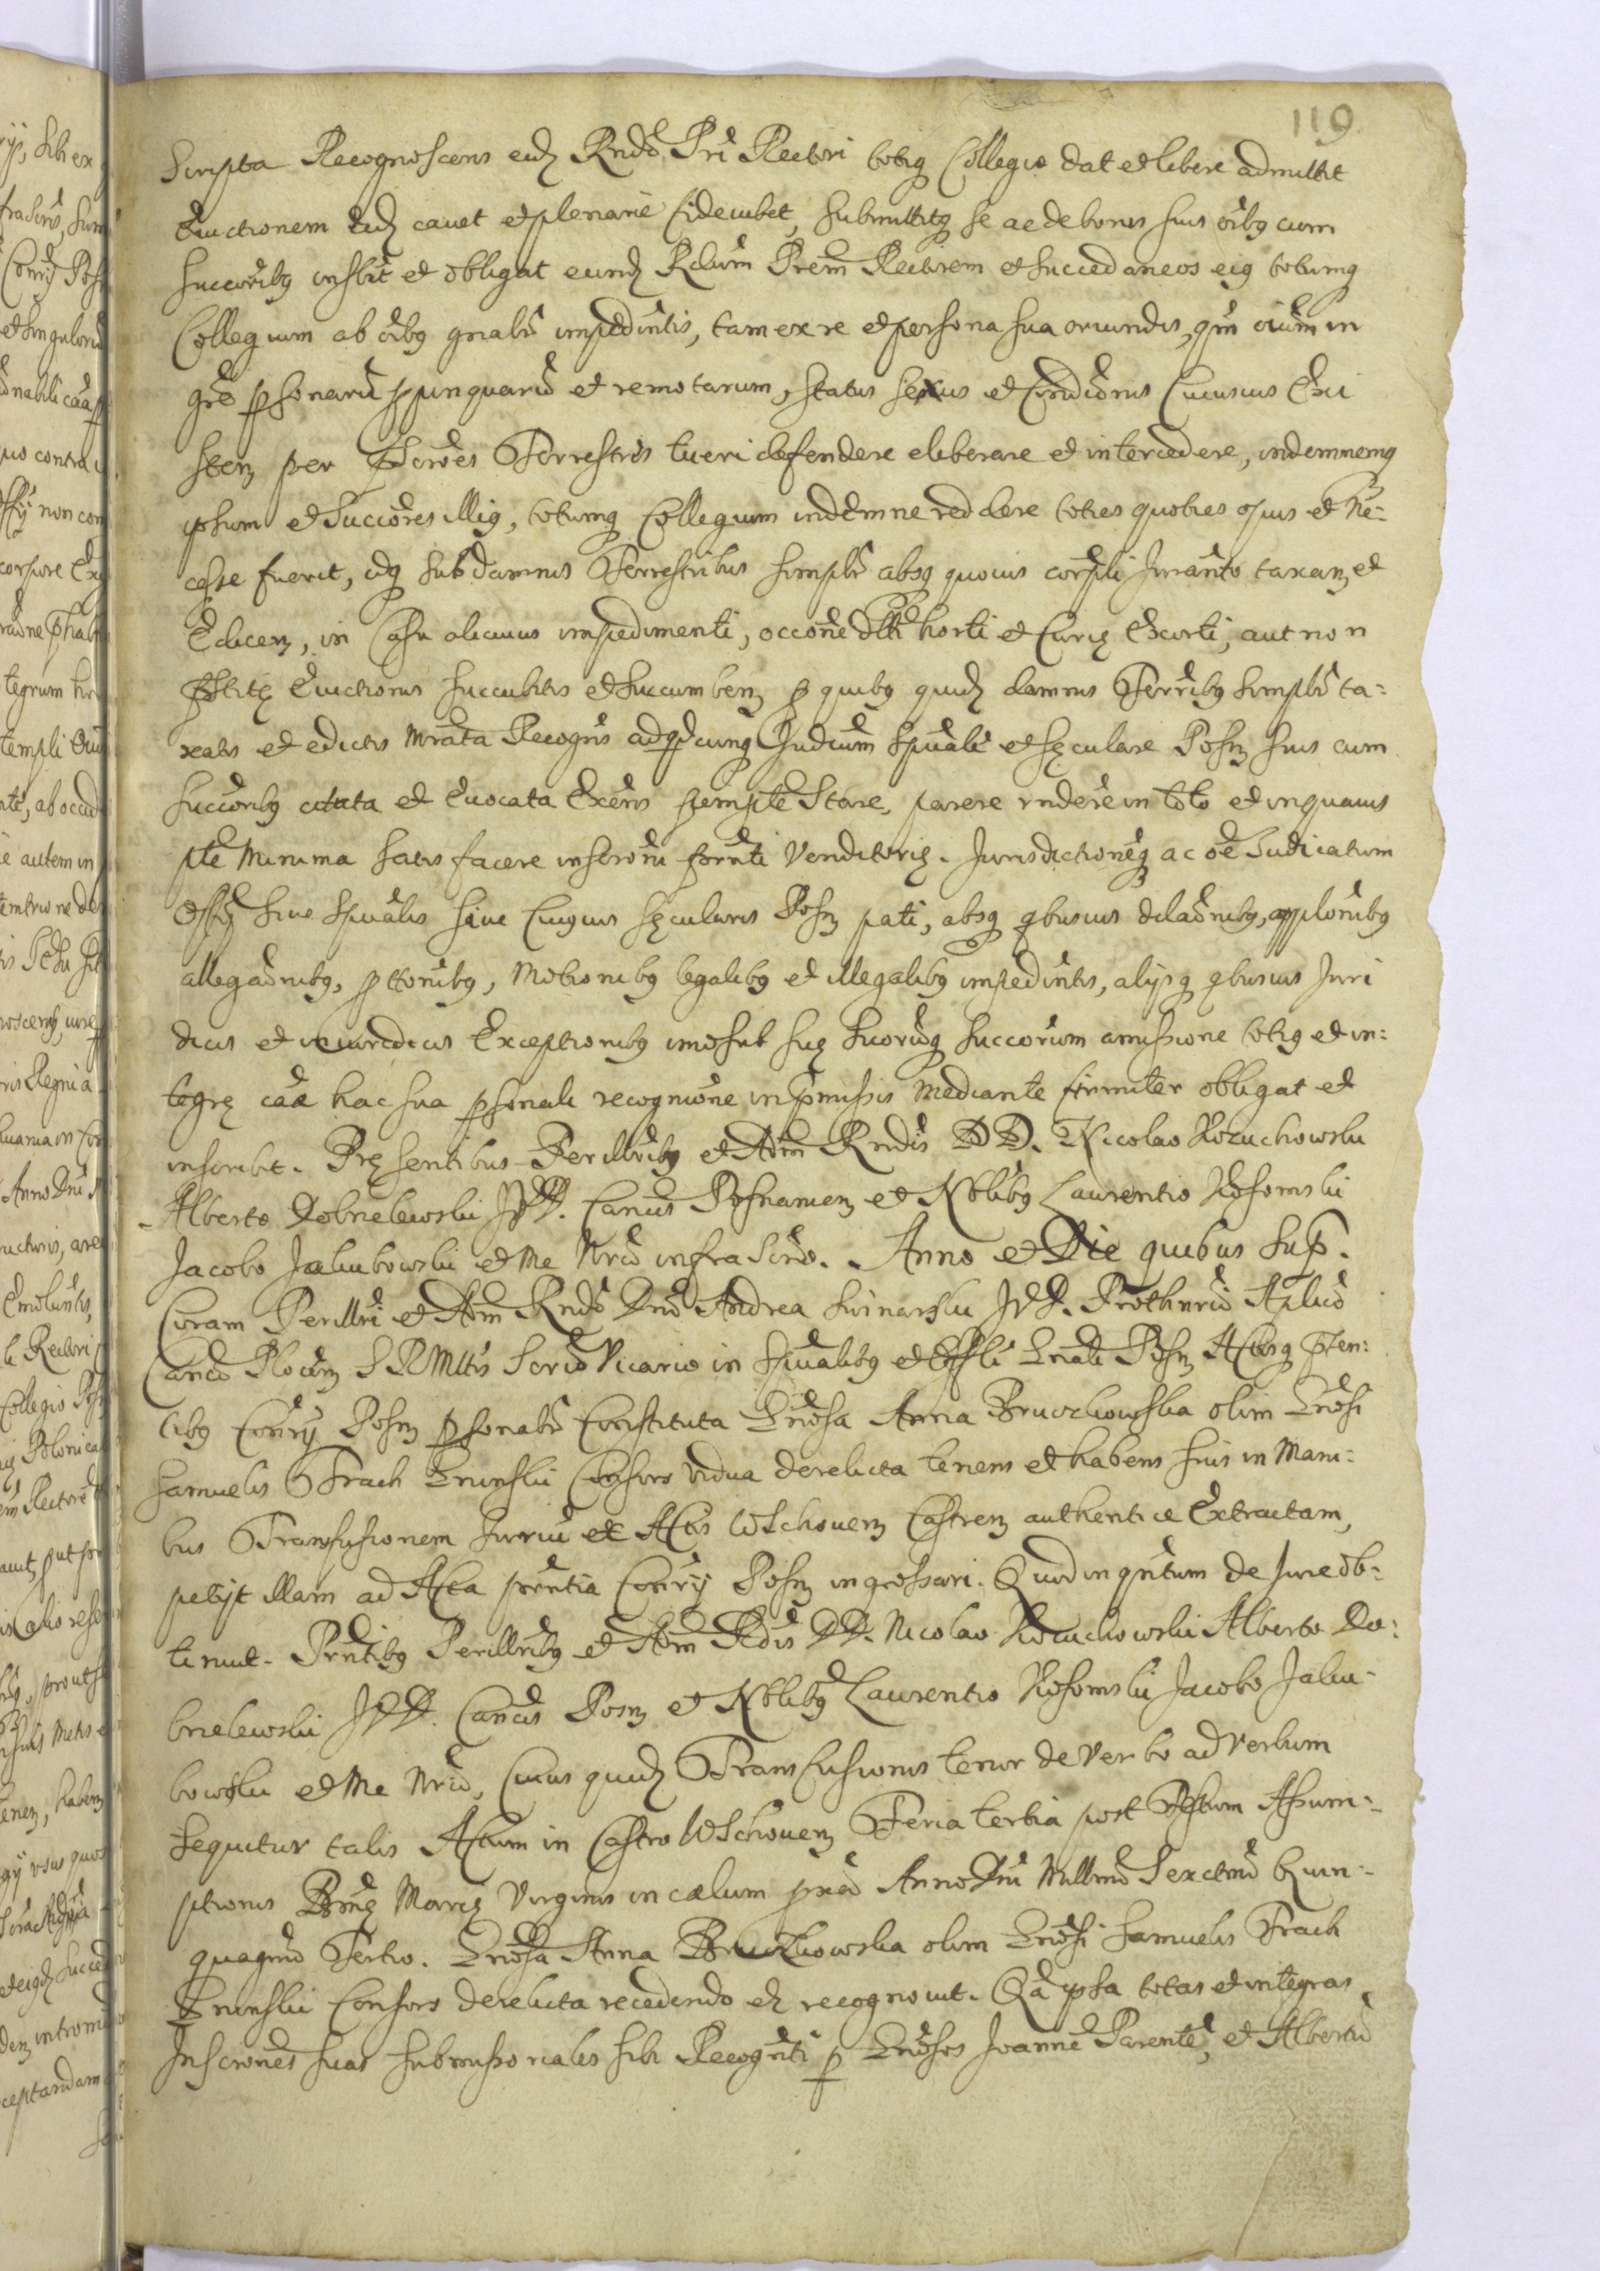 119
Scripta Recognoscens eidz Rndo Pri Rectori totiq Collegio dat et libere admittit
Evictionem eidz cavet et plenarie fideiubet, submittitq se ac de bonis suis oibq cum
succoribq inscbit et obligat eundz Rdum Prem Rectorem et succedaneos eiq totumq
Collegium ab oibq gnalr impedintis, tam ex re et persona sua oriundis, qm oium in
gre psonaru ppinquaru et remotarum, status sexus et Condicionis Cuiusuis Exi
stenz per Terrestres tueri defendere eliberare et intercedere, indemnemq
ipsum et Succores illiq, totumq Collegium indemne reddere toties quoties opus et Ne=
cesse fuerit, idq sub damnis Terrestribus simplr absq quouis corpli Juranto taxanz et
Edicenz, in Casu alicuius impedimenti, occone dti horti et Curiæ Exorti, aut non
pstitæ Euictionis succubitis et succumbenz p quibq quidz damnis Terribq simplr ta=
xatis et edictis Mrata Recogns ad qdcunq Judicium Spuale et sęculare Posnz suis cum
succoribq citata et Euocata Exens perempte Stare, parere rndere in toto et in quauis
pte Minima satisfacere inscroni fornti Venditoriæ. Jurisdictioneq ac oe Judicatum
Offz siue Spualis siue Cuiquis sęcularis Posnz pati, absq qbusuis dilaonibq, applonibq
allegaonibq, pttonibq, Motionibq legalibq et illegalibq impedintis, alijsq qbusuis Juri
dicis et iniuridicis Exceptionibq imo sub suę suorumq succorum amissione totiq et in=
tegrę cae hac sua psonali recognione in pmissis Mediante firmiter obligat et
inscribit. Pręsentibus Perillribq et Adm Rndis DD. Nicolao Kozuchowski
Alberto Dobrielewski JVD. Cancis Posnanienz et Nobilibq Laurentio Kosomski
Jacobo Jakubowski et Me Nrio infra Scro. Anno et Die quibus Sup.
Coram Perillri et Adm Rndo Dno Andrea Swinarski JVD. Prothnrio Aplico
Canco Plocenz S R Mttis Scrio Vicario in Spualibq et Offli Gnali Posnz Actisq pten=
tibq Conrij Posnz psonalr Constituta Gnosa Anna Bruczkowska olim Gnosi
Samuelis Trach Gninski Consors vidua derelicta tenens et habens suis in Mani=
bus Transfusionem Jurium ex Actis Wschouenz Castrenz authentice Extractam,
petijt illam ad Acta prntia Conrij Posnz ingrossari. Quod inqntum de Jure ob=
tinuit. Prntibq Perillribq et Adm Rdis DD. Nicolao Kozuchowski Alberto Do=
brielewski JVD. Cancis Posnz et Nobilibq Laurentio Kosomski Jacobo Jaku=
bowski et Me Nrio, Cuius quidz Transfusionis tenor de Verbo ad Verbum
sequitur talis Actum in Castro Wschouenz Feria tertia post Festum Assum=
ptionis Bmę Marię Virginis in cælum pxa Anno Dni Millmo Sexctmo Quin=
quagmo Tertio. Gnosa Anna Bruczkowska olim Gnosi Samuelis Trach
Gninski Consors derelicta recedendo etz recognouit. Qa ipsa totas et integras
Inscrones suas submissionales sibi Recognti p Gnosos Joanne Parente, et Albertu